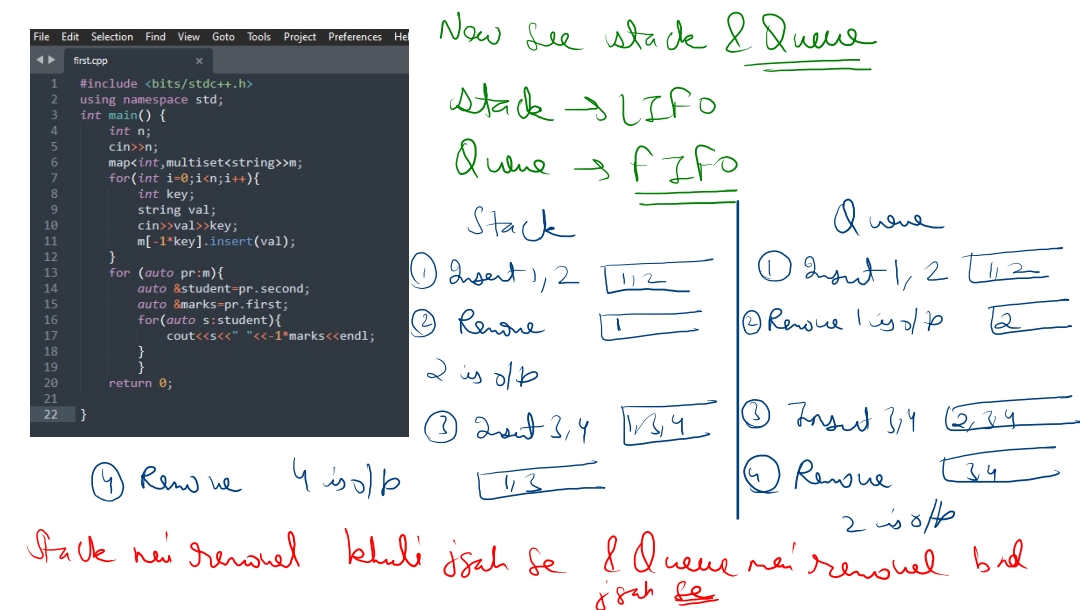 File Edit Selection Find View Goto Tools Project Preferences Hel
first.cpp ×
1 #include <bits/stdc++.h>
2 using namespace std;
3 int main() {
4 int n;
5 cin>>n;
6 map<int,multiset<string>>m;
7 for(int i=0;i<n;i++){
8 int key;
9 string val;
10 cin>>val>>key;
11 m[-1*key].insert(val);
12 }
13 for (auto pr:m){
14 auto &student=pr.second;
15 auto &marks=pr.first;
16 for(auto s:student){
17 cout<<s<<" "<<-1*marks<<endl;
18 }
19 }
20 return 0;
21
22 }
Now See stack & Queue
Stack → LIFO
Queue → FIFO
Stack
① Insert 1, 2 1, 2
② Remove 1
2 is o/p
③ Insert 3, 4 1, 3, 4
④ Remove 4 is o/p 1, 3
Queue
① Insert 1, 2 1, 2
② Remove 1 is o/p 2
③ Insert 3, 4 2, 3, 4
④ Remove 3, 4
2 is o/p
Stack mei removel khuli jgah se & Queue mei removel bnd
jgah se